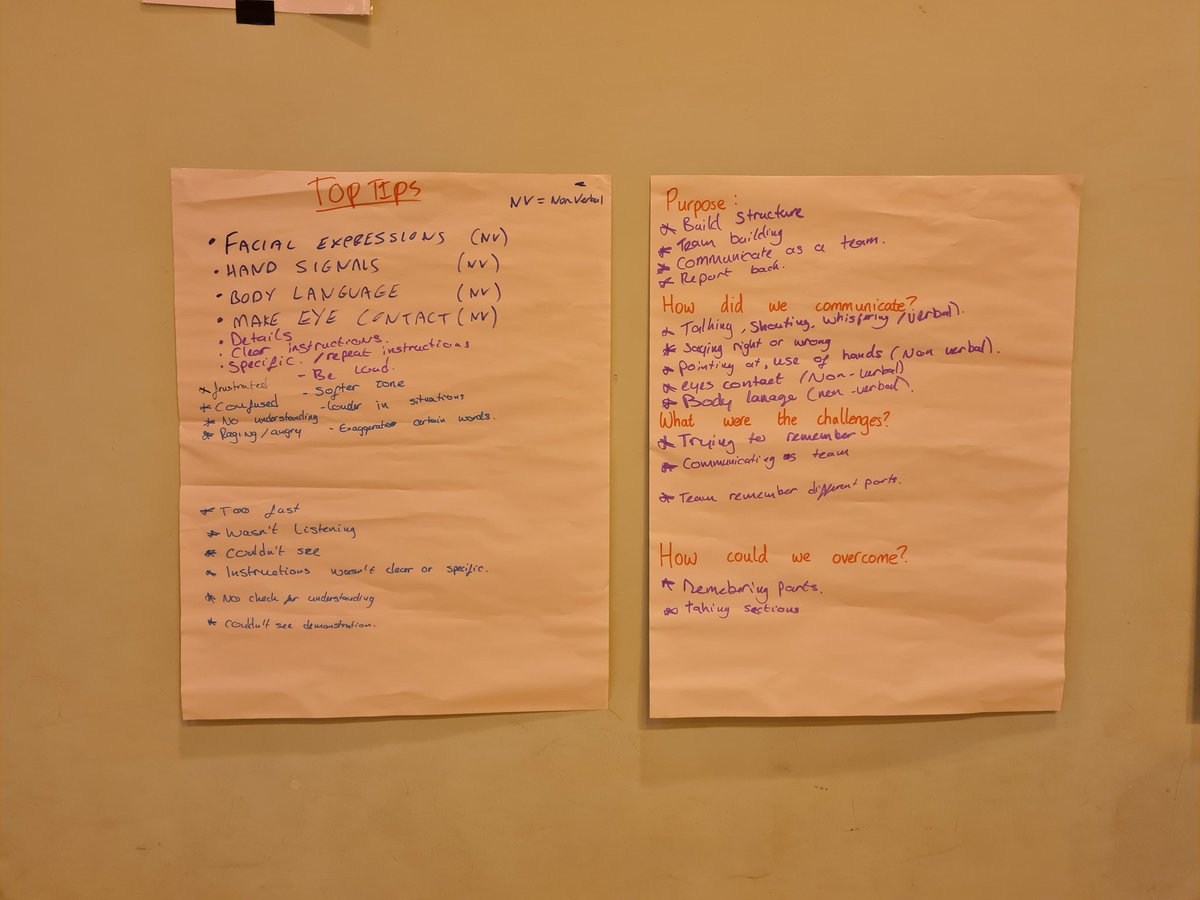 TOP TIPS
NV = Non Verbal
• FACIAL EXPRESSIONS (NV)
• HAND SIGNALS (NV)
• BODY LANGUAGE (NV)
• MAKE EYE CONTACT (NV)
• Details
• Clear instructions.
• Specific. /repeat instructions
- Be loud.
* frustrated - Softer tone
* Confused - louder in situations
* No understanding
* Raging/angry - Exaggerate certain words.
* Too fast
* Wasn't listening
* Couldn't see
* Instructions wasn't clear or specific.
* No check for understanding
* couldn't see demonstration.
Purpose:
* Build structure
* Team building
* Communicate as a team.
* Report back.
How did we communicate?
* Talking, Shouting, whispering /(verbal).
* Saying right or wrong
* Pointing at, use of hands (Non verbal).
* eyes contact (Non-verbal)
* Body lanage (non-verbal).
What were the challenges?
* Trying to remember
* Communicating as team
* Team remember different parts.
How could we overcome?
* Remebering parts.
* taking sections